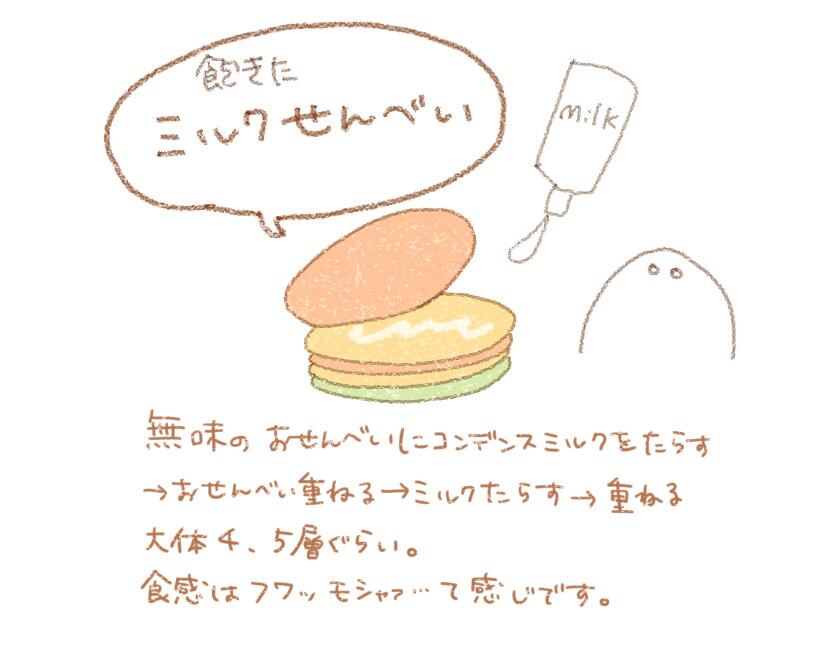 飽きた
ミルクせんべい
milk
無味のおせんべいにコンデンスミルクをたらす
→おせんべい重ねる→ミルクたらす→重ねる
大体4、5層ぐらい。
食感はフワッモシャァ…て感じです。